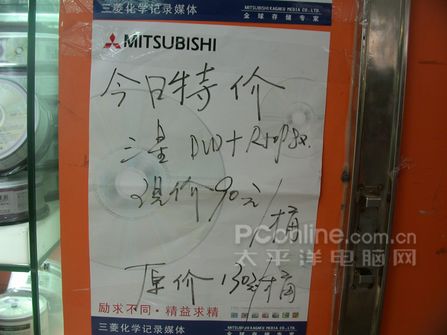 三菱化学记录媒体
MITSUBISHI KAGAKU MEDIA CO.,LTD.
全球存储专家
MITSUBISHI
今日特价
三星 DVD+R 8X.
现价90元/桶
原价130元/桶
PConline.com.cn
太平洋电脑网
励求不同·精益求精
三菱化学记录媒体
全球存储专家